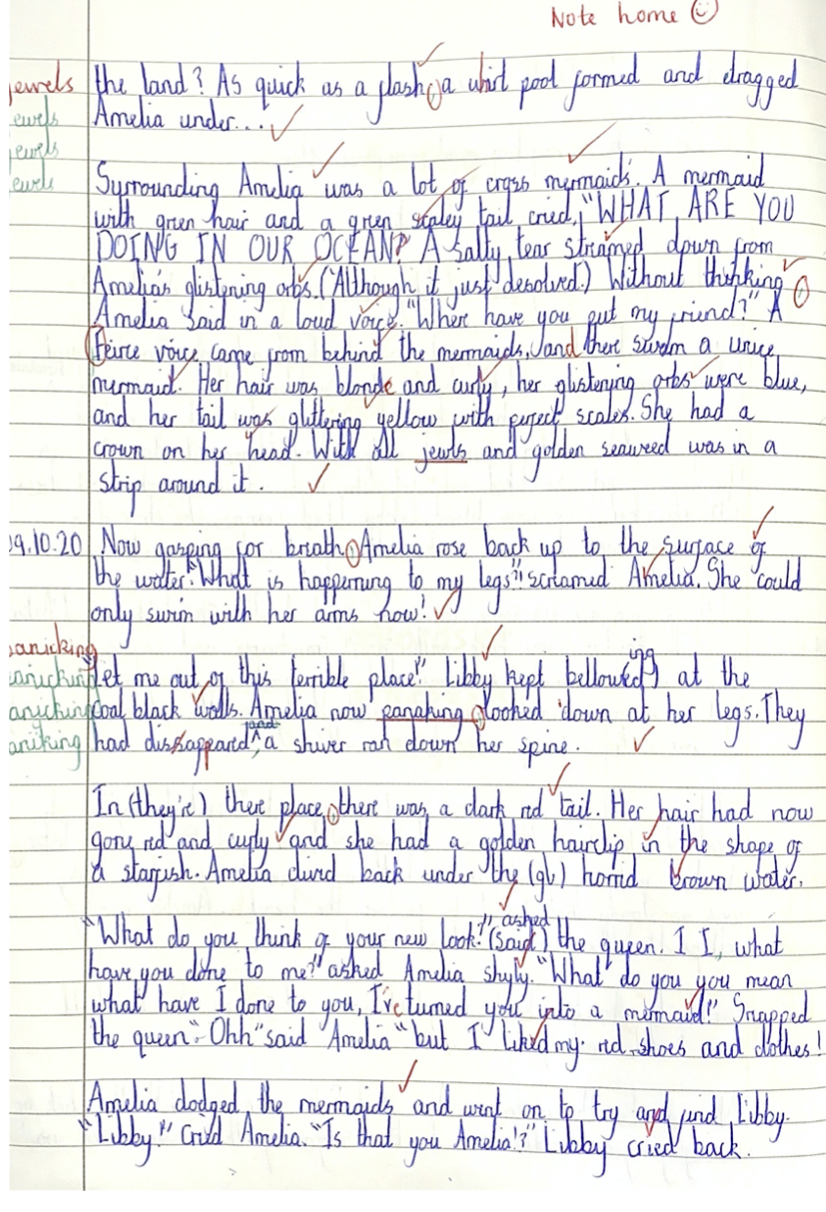 Note home
jewels the land? As quick as a flash, a whirl pool formed and dragged
ewels Amelia under...
ewels
ewels Surrounding Amelia was a lot of cross mermaids. A mermaid
with green hair and a green scaley tail cried, "WHAT ARE YOU
DOING IN OUR OCEAN? A salty tear streamed down from
Amelia's glistening orbs. (Although it just desolved.) Without thinking,
Amelia said in a loud voice. "Where have you put my friend?" A
feirce voice came from behind the mermaids, and there swam a unice
mermaid. Her hair was blonde and curly, her glistening orbs were blue,
and her tail was glittering yellow with perfect scales. She had a
crown on her head. With all jewls and golden seaweed was in a
strip around it.
09.10.20 Now gasping for breath, Amelia rose back up to the surface of
the water. "What is happerning to my legs"!! screamed Amelia. She could
only swim with her arms now!
panicking
anicking "let me out of this terrible place!" Libby kept bellowing at the
anicking coal black walls. Amelia now panaking, looked down at her legs. They
aniking had dissappeared, and a shiver ran down her spine.
In (they're) there place, there was a dark red tail. Her hair had now
gone red and curly and she had a golden hairclip in the shape of
a starfish. Amelia dived back under the (gl) horrid brown water.
"What do you think of your new look?" (said) asked the queen. I I, what
have you done to me?" asked Amelia shyly. "What do you you mean
what have I done to you, I've turned you into a mermaid!" Snapped
the queen. "Ohh" said Amelia "but I liked my red shoes and clothes!
Amelia dodged the mermaids and went on to try and find Libby.
"Libby!" Cried Amelia. "Is that you Amelia!?" Libby cried back.